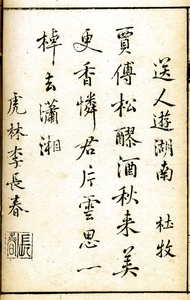 送人遊湖南　杜牧
賈傅松醪酒秋来美
更香憐君片雲思一
棹去瀟湘
虎林李長春